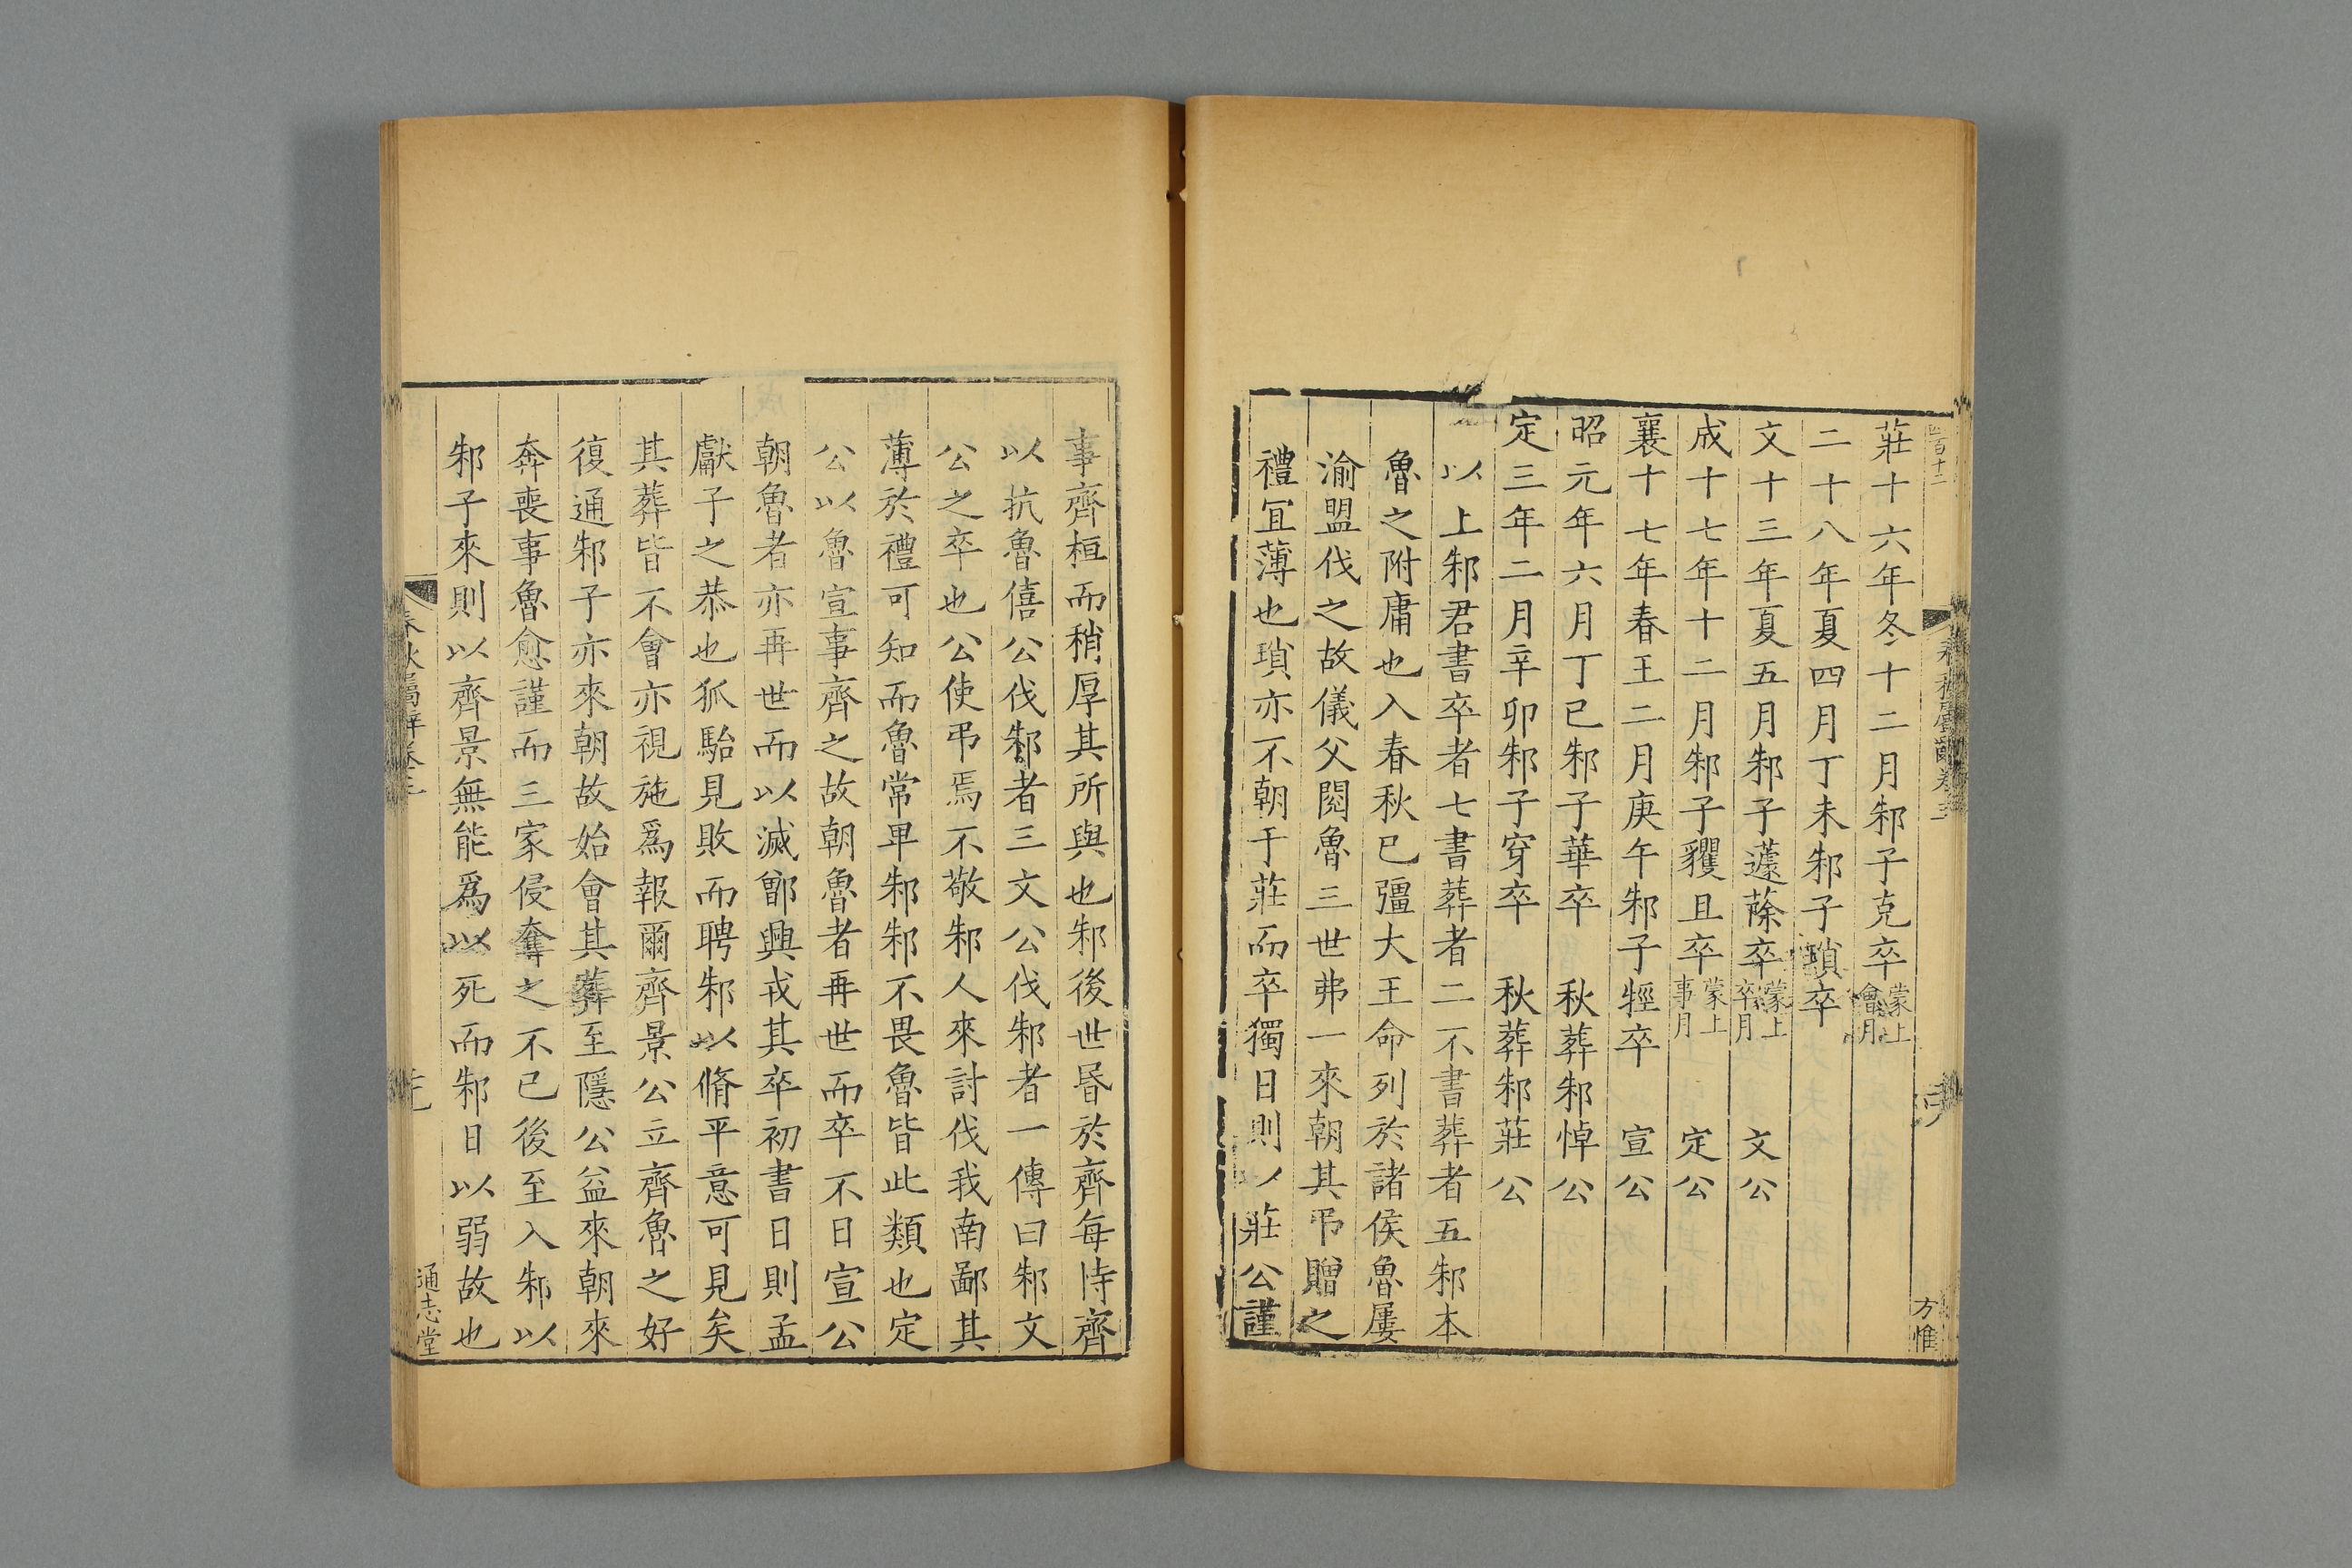 莊十六年冬十二月邾子克卒蒙上會月
二十八年夏四月丁未邾子瑣卒
文十三年夏五月邾子蘧蒢卒蒙上卒月 文公
成十七年十二月邾子貜且卒蒙上事月 定公
襄十七年春王二月庚午邾子牼卒 宣公
昭元年六月丁巳邾子華卒 秋葬邾悼公
定三年二月辛卯邾子穿卒 秋葬邾莊公
以上邾君書卒者七書葬者二不書葬者五邾本
魯之附庸也入春秋已彊大王命列於諸侯魯屢
渝盟伐之故儀父閱魯三世弗一來朝其弔贈之
禮宜薄也瑣亦不朝于莊而卒獨日則以莊公謹
方惟
事齊桓而稍厚其所與也邾後世昬於齊每恃齊
以抗魯僖公伐邾者三文公伐邾者一傳曰邾文
公之卒也公使弔焉不敬邾人來討伐我南鄙其
薄於禮可知而魯常卑邾邾不畏魯皆此類也定
公以魯宣事齊之故朝魯者再世而卒不日宣公
朝魯者亦再世而以滅鄫興戎其卒初書日則孟
獻子之恭也狐駘見敗而聘邾以脩平意可見矣
其葬皆不會亦視施爲報爾齊景公立齊魯之好
復通邾子亦來朝故始會其葬至隱公益來朝來
奔喪事魯愈謹而三家侵奪之不已後至入邾以
邾子來則以齊景無能爲以死而邾日以弱故也
春秋屬辭卷三
通志堂